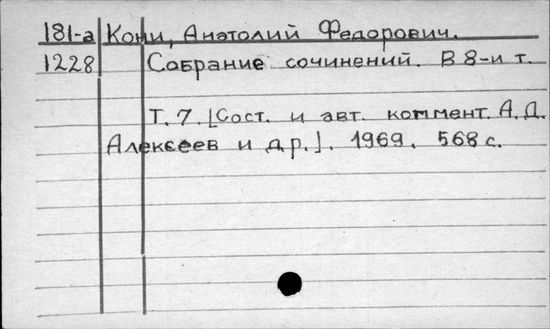 181-а Кони, Анатолий Федорович.
1228 Собрание сочинений. В 8-и т.
Т. 7. [Сост. и авт. коммент. А. Д.
Алексеев и др.]. 1969. 568 с.